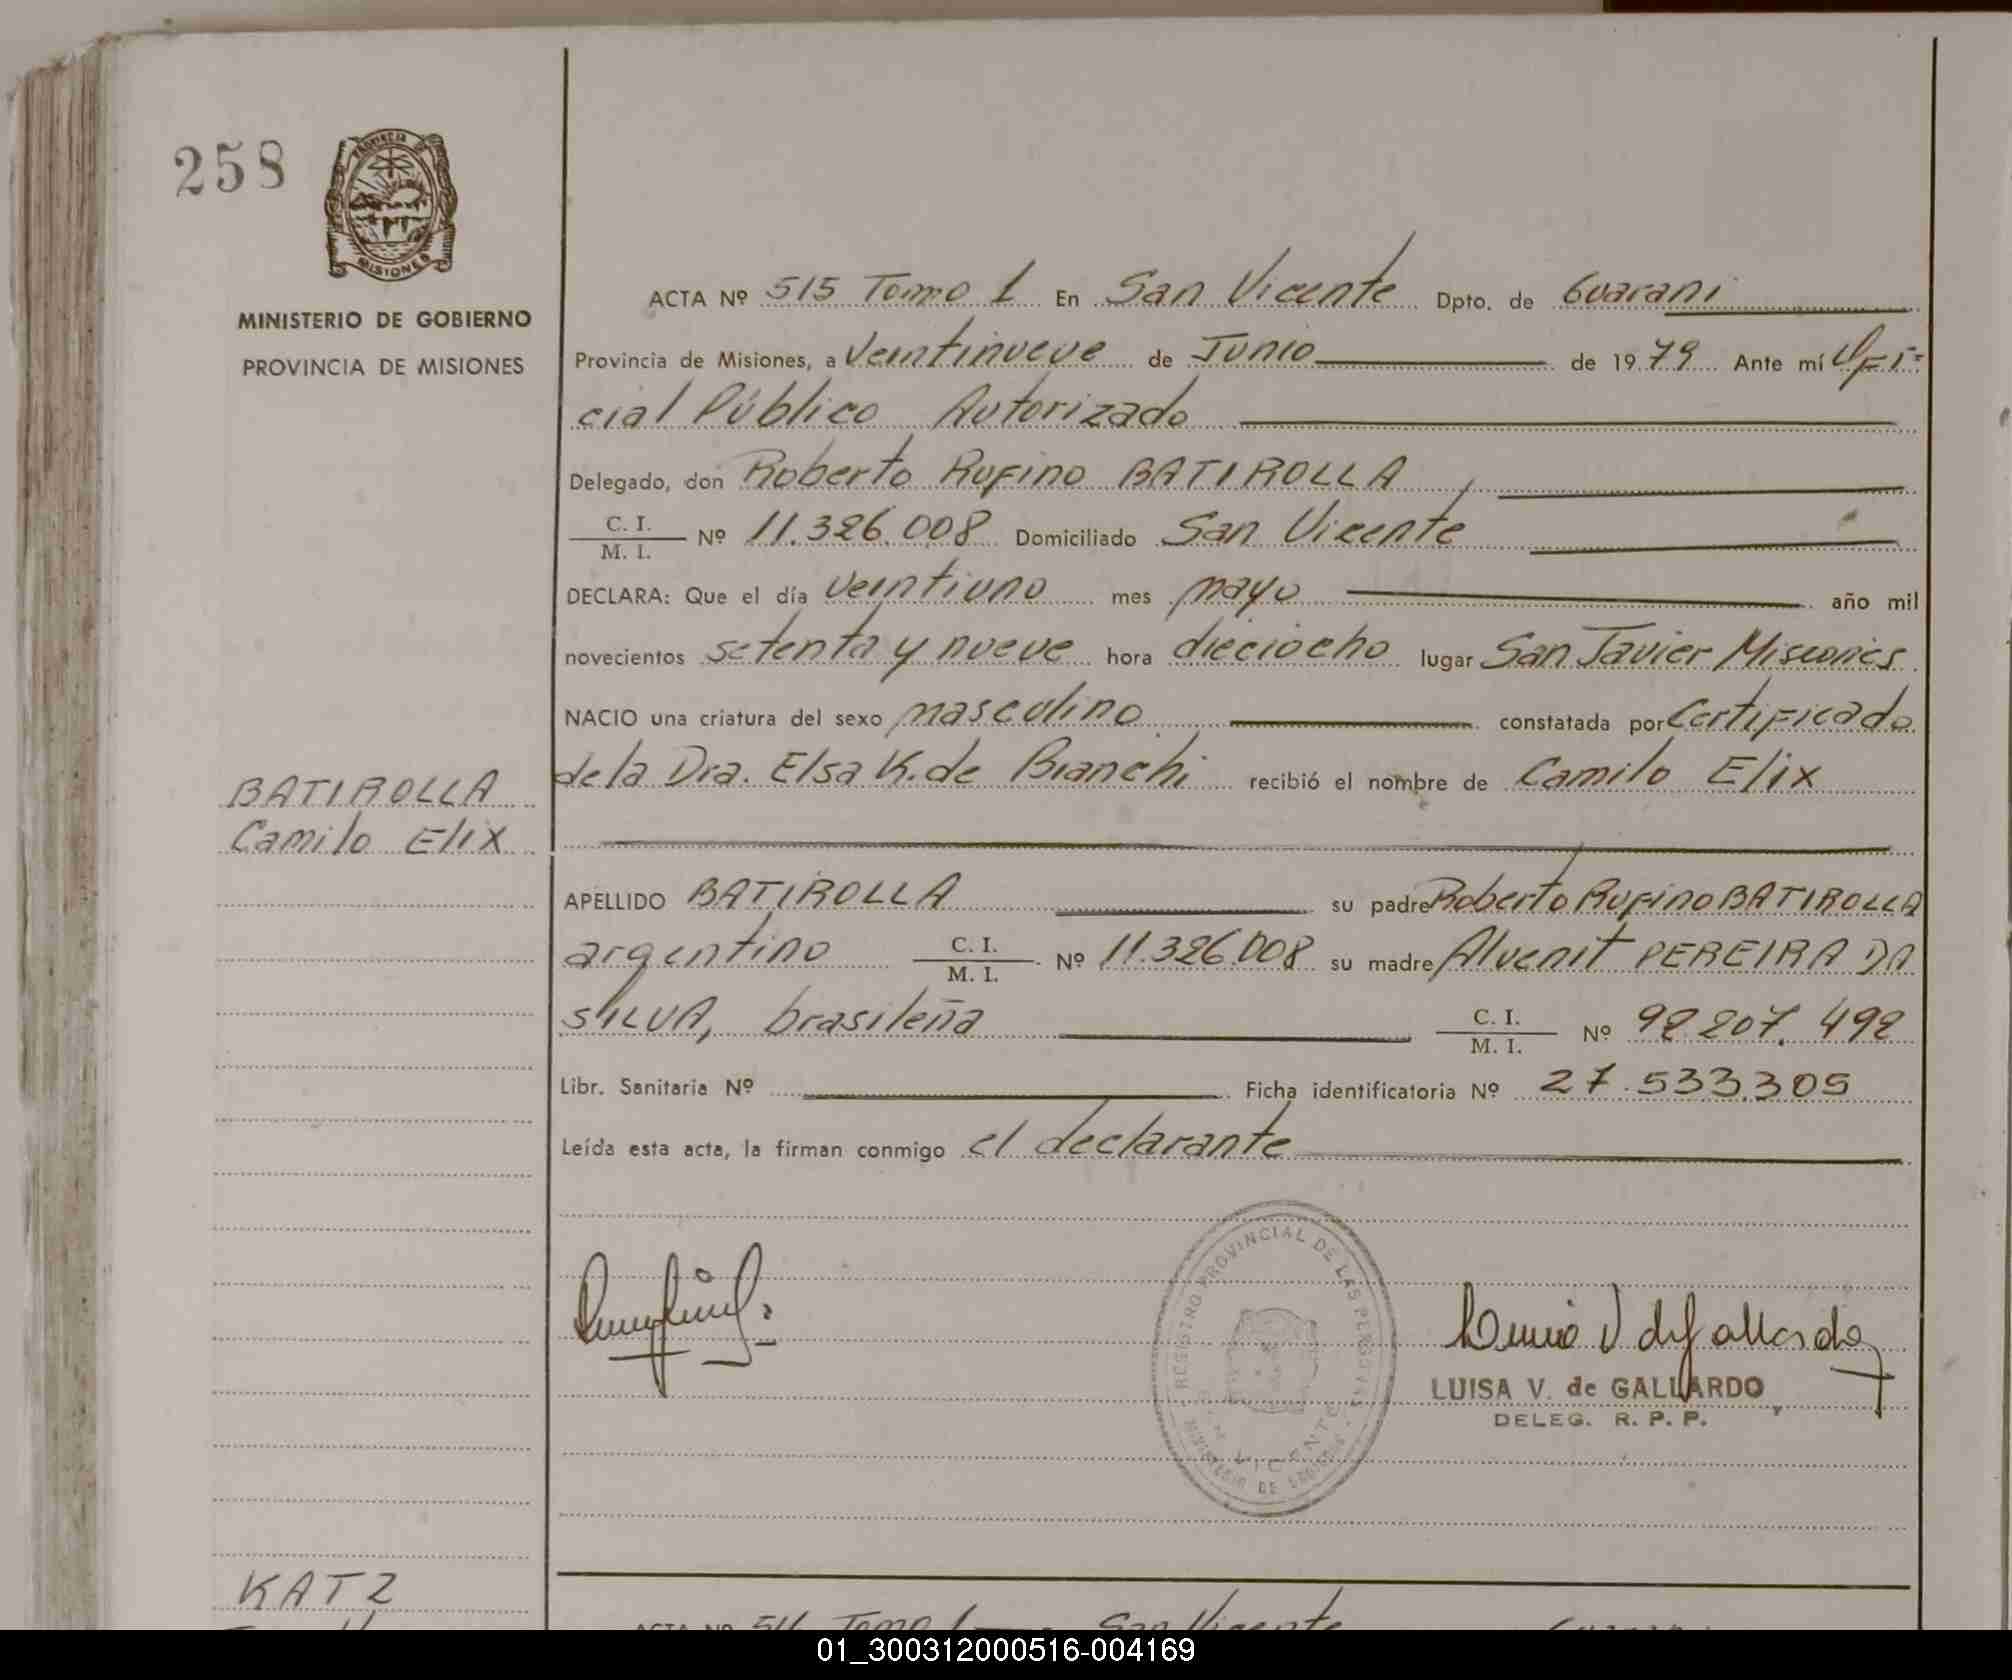 258
PROVINCIA DE
MISIONES
MINISTERIO DE GOBIERNO
PROVINCIA DE MISIONES
ACTA Nº 515 Tomo 1 En San Vicente Dpto. de Guarani
Provincia de Misiones, a Veintinueve de Junio de 1979 Ante mí Ofi=
cial Público Autorizado
Delegado, don Roberto Rufino BATIROLLA
C. I.
M. I. Nº 11.326.008 Domiciliado San Vicente
DECLARA: Que el día veintiuno mes mayo año mil
novecientos setenta y nueve hora dieciocho lugar San Javier Misiones
NACIO una criatura del sexo masculino constatada por Certificado
de la Dra. Elsa K. de Bianchi recibió el nombre de Camilo Elix
BATIROLLA
Camilo Elix
APELLIDO BATIROLLA su padre Roberto Rufino BATIROLLA
argentino C. I.
M. I. Nº 11.326.008 su madre Alvenit PEREIRA DA
SILVA, brasileña C. I.
M. I. Nº 92.207.492
Libr. Sanitaria Nº Ficha identificatoria Nº 27.533.305
Leída esta acta, la firman conmigo el declarante
REGISTRO PROVINCIAL DE LAS PERSONAS
VICENTE
MINISTERIO DE GOBIERNO
Luisa V de Gallardo
LUISA V. de GALLARDO
DELEG. R. P. P.
KATZ
ACTA Nº 516 Tomo 1 San Vicente Guarani
01_300312000516-004169